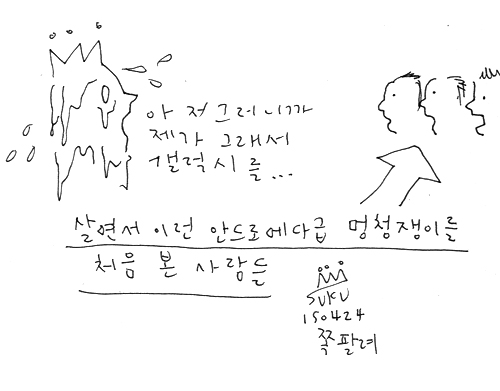 아 저그러니까
제가 그래서
갤럭시를...
살면서 이런 안드로메다급 멍청쟁이를
처음 본 사람들
SUKU
150424
쪽팔려